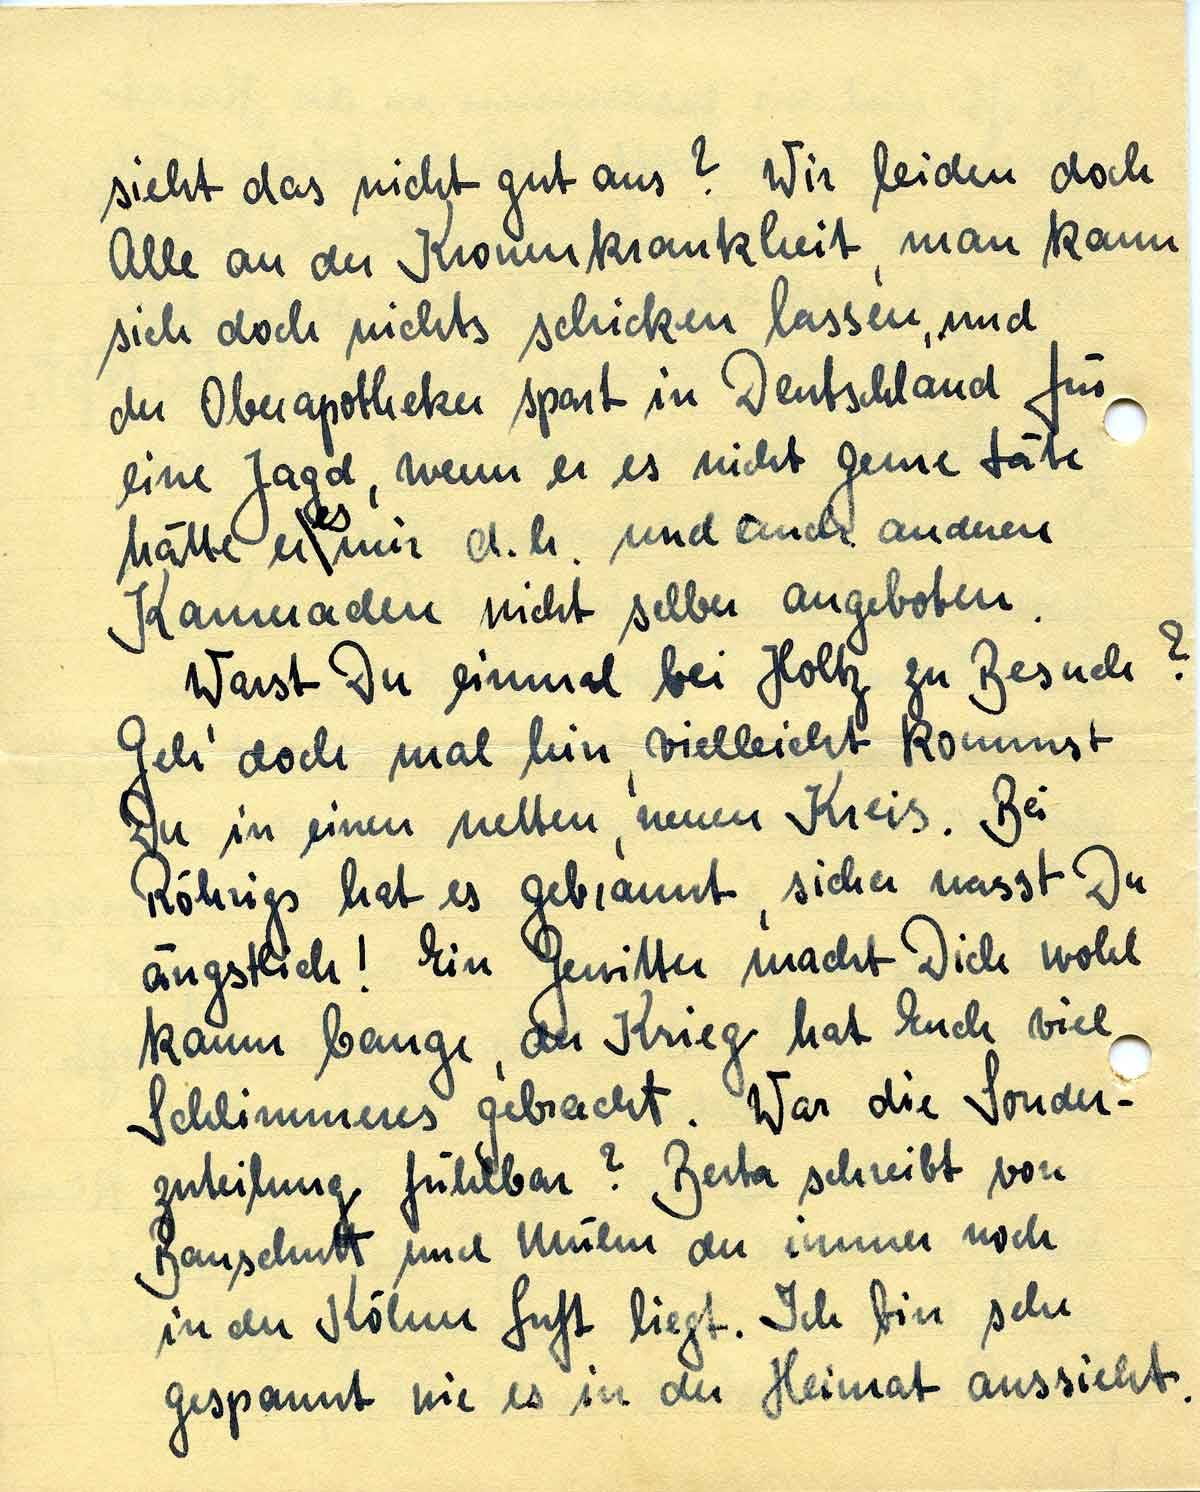 sieht das nicht gut aus? Wir leiden doch
Alle an der Kronenkrankheit, man kann
sich doch nichts schicken lassen, und
der Oberapotheker spart in Deutschland für
eine Jagd, wenn er es nicht gerne täte
hätte er es mir d.h. und auch anderen
Kameraden nicht selber angeboten.
Warst Du einmal bei Holtz zu Besuch?
Geh' doch mal hin, vielleicht kommst
Du in einen netten, neuen Kreis. Bei
Röhrigs hat es gebrannt, sicher warst Du
ängstlich! Ein Gewitter macht Dich wohl
kaum bange, der Krieg hat Euch viel
Schlimmeres gebracht. War die Sonder-
zuteilung fühlbar? Berta schreibt von
Bauschutt und Mulm der immer noch
in der Kölner Luft liegt. Ich bin sehr
gespannt wie es in der Heimat aussieht.